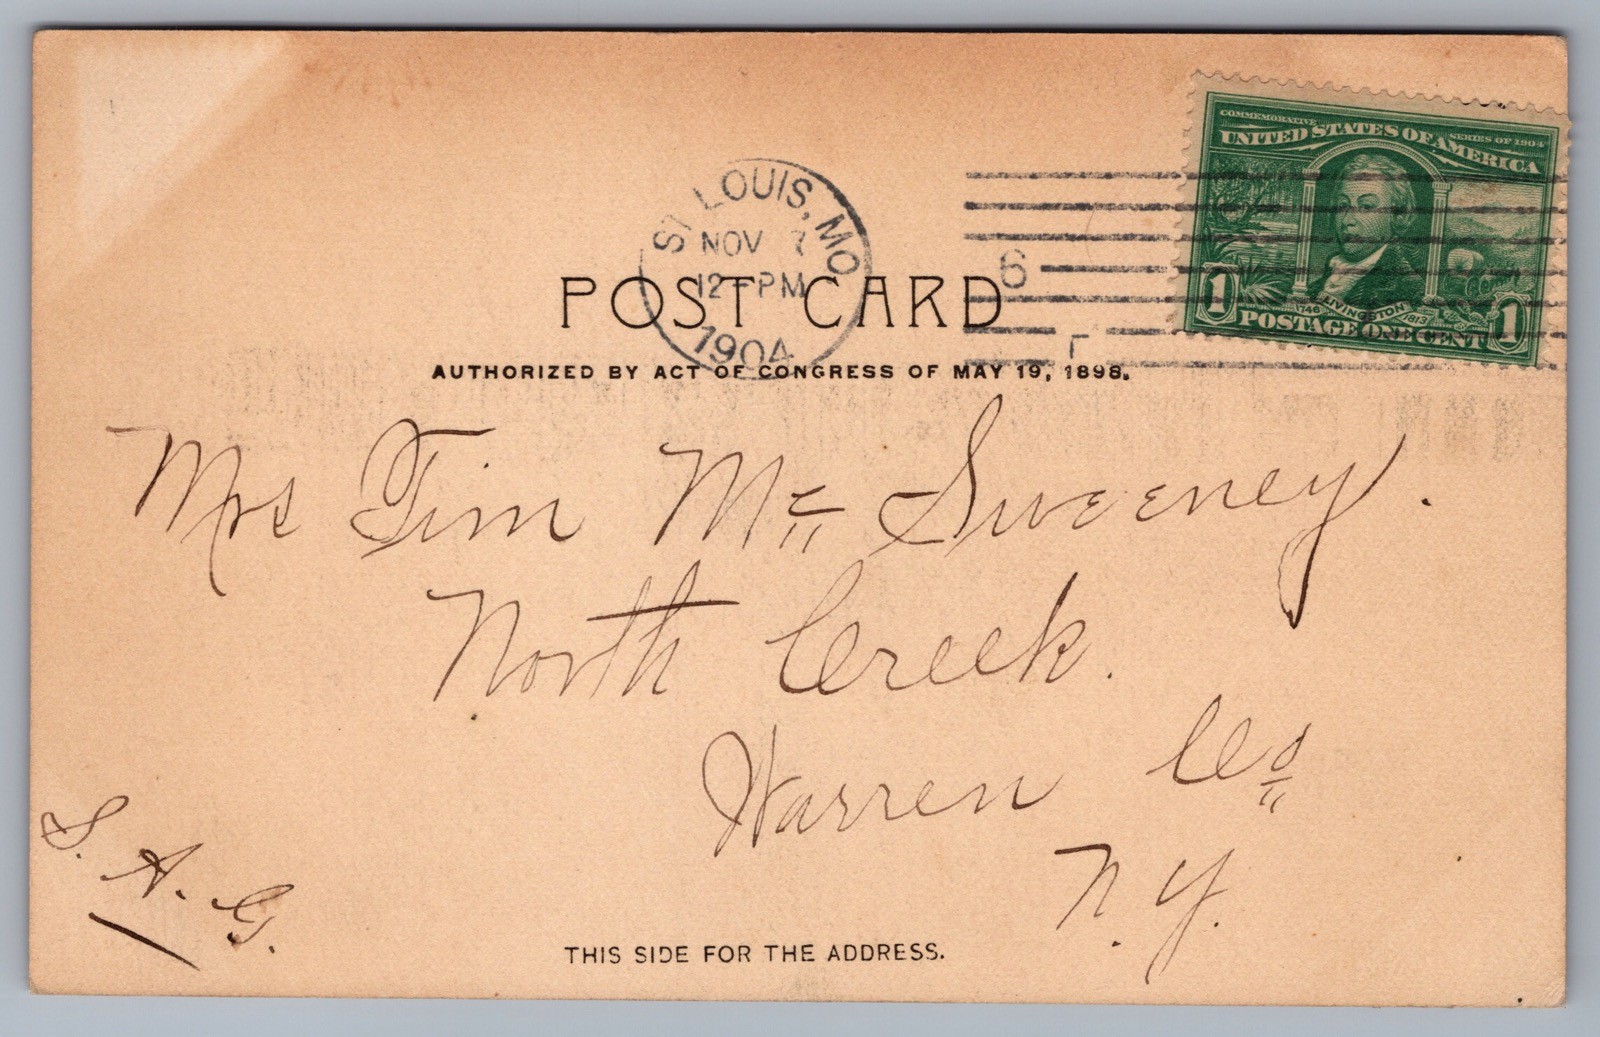 COMMEMORATIVE SERIES OF 1904
UNITED STATES OF AMERICA
1746 LIVINGSTON 1813
1 POSTAGE ONE CENT 1
ST LOUIS, MO
NOV 7
12-PM
1904
6
POST CARD
AUTHORIZED BY ACT OF CONGRESS OF MAY 19, 1898.
Mrs Tim Mc Sweeney.
North Creek.
Warren Co
N.Y.
S. A. G.
THIS SIDE FOR THE ADDRESS.